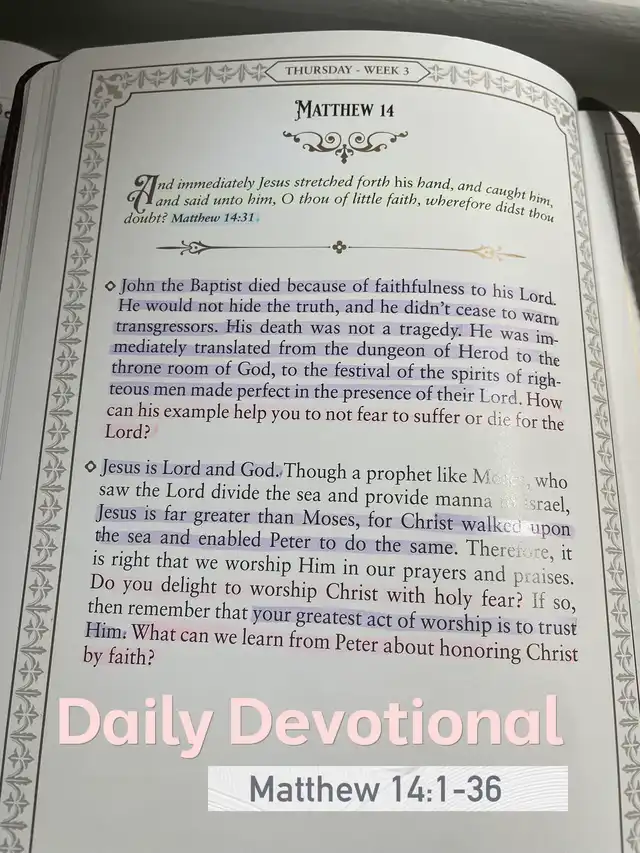 THURSDAY - WEEK 3
MATTHEW 14
And immediately Jesus stretched forth his hand, and caught him,
and said unto him, O thou of little faith, wherefore didst thou
doubt? Matthew 14:31.
◇ John the Baptist died because of faithfulness to his Lord.
He would not hide the truth, and he didn't cease to warn
transgressors. His death was not a tragedy. He was im-
mediately translated from the dungeon of Herod to the
throne room of God, to the festival of the spirits of righ-
teous men made perfect in the presence of their Lord. How
can his example help you to not fear to suffer or die for the
Lord?
◇ Jesus is Lord and God. Though a prophet like Moses, who
saw the Lord divide the sea and provide manna Israel,
Jesus is far greater than Moses, for Christ walked upon
the sea and enabled Peter to do the same. Therefore, it
is right that we worship Him in our prayers and praises.
Do you delight to worship Christ with holy fear? If so,
then remember that your greatest act of worship is to trust
Him. What can we learn from Peter about honoring Christ
by faith?
Daily Devotional
Matthew 14:1-36